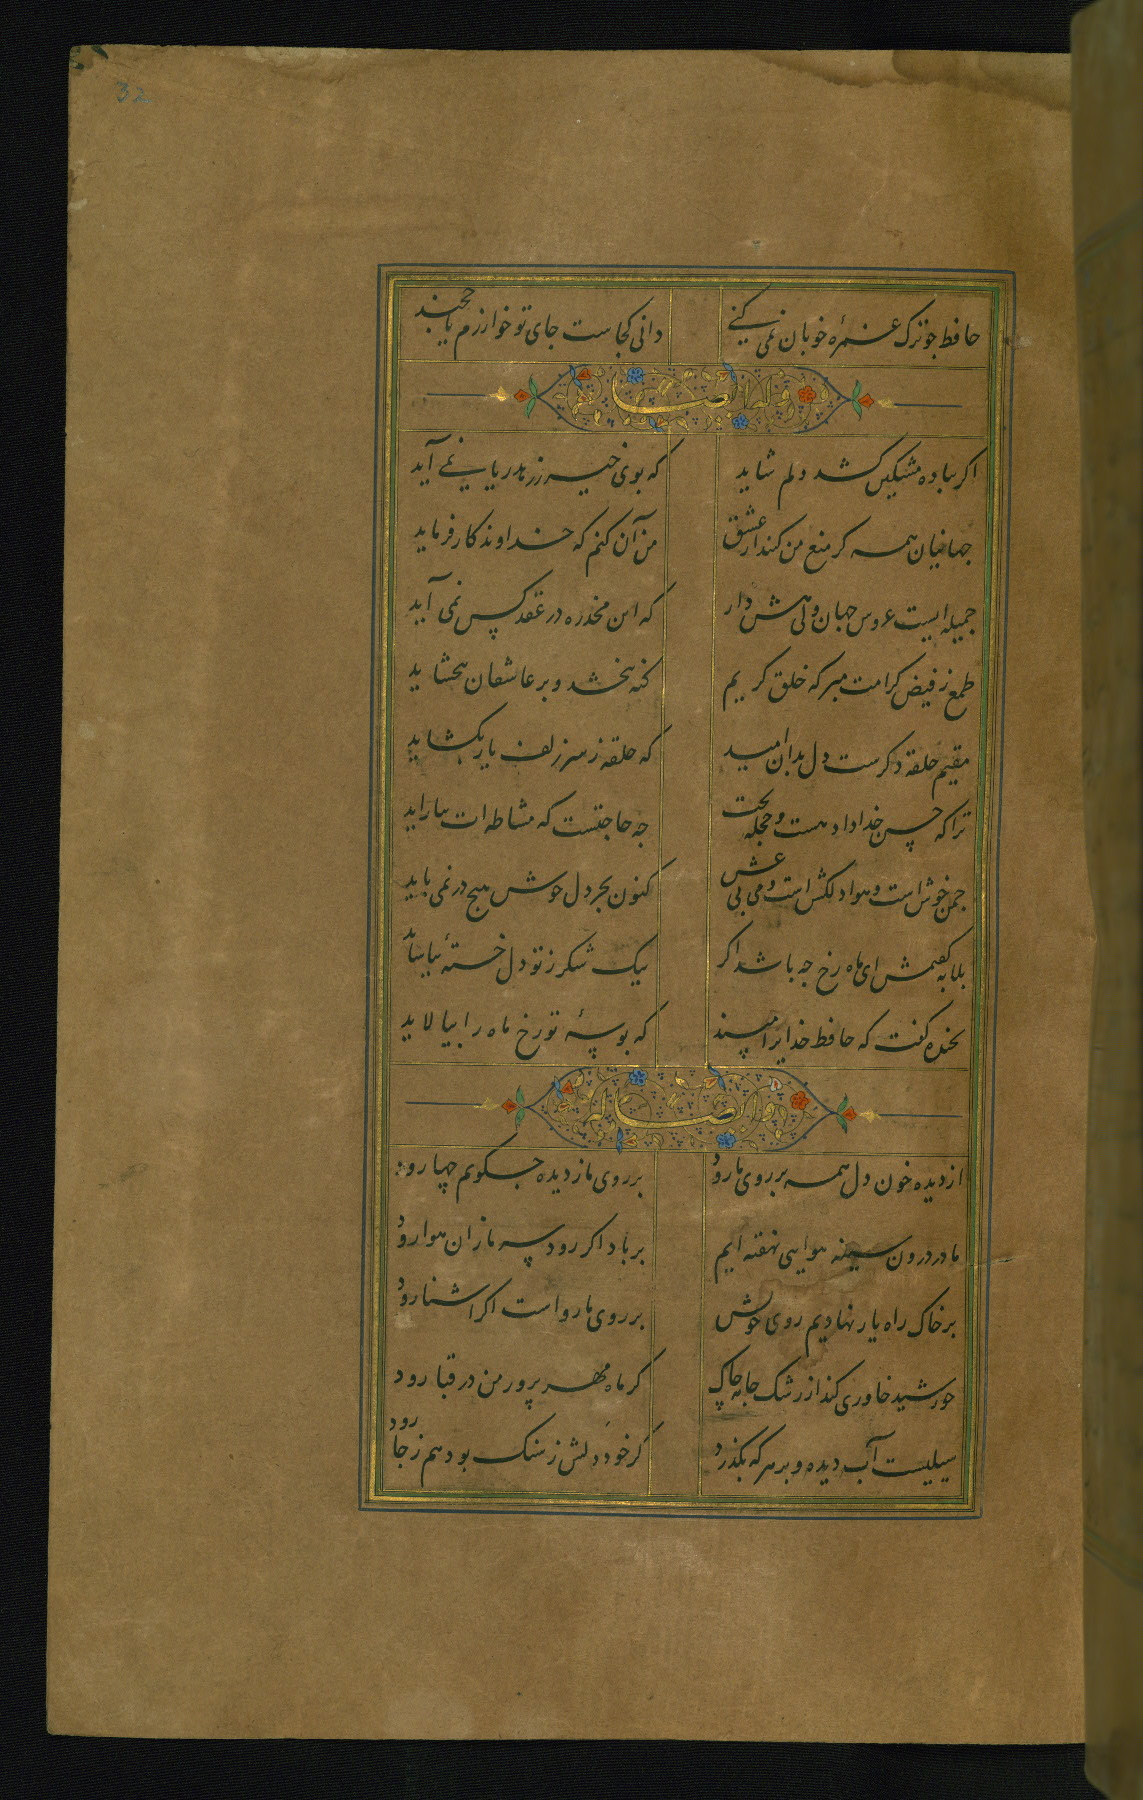 32
حافظ جو ترک غمزهٔ خوبان نمی کنی دانی کجاست جای تو خوارزم یا خجند
وله ایضا
اکر بباده مشکین کشد دلم شاید که بوی خیر ز زهد ریایی نمی آید
جهانیان همه کر منع من کنند از عشق من آن کنم که خداوند کار فرماید
جمیله ایست عروس جهان ولی هش دار که این مخدره در عقد کس نمی آید
طمع ز فیض کرامت مبر که خلق کریم کنه ببخشد و بر عاشقان ببخشاید
مقیم حلقه ذکرست دل بدان امید که حلقه ز سر زلف یار بکشاید
ترا که حسن خداداد هست و حجله بخت جه حاجتست که مشاطه ات بیاراید
جمن خوش است و هوا دلکش است و می بی غش کنون بجز دل خوش هیج در نمی باید
بلابه کفتمش ای ماه رخ جه باشد اکر بیک شکر ز تو دل خستهٔ بیاساید
بخنده کفت که حافظ خدایرا مپسند که بوسهٔ تو رخ ماه را بیالاید
وله ایضا
از دیده خون دل همه بر روی ما رود بر روی ما ز دیده جکویم جها رود
ما در درون سینه هوایی نهفته ایم بر باد اکر رود سر ما زان هوا رود
بر خاک راه یار نهادیم روی خویش بر روی ما رواست اکر آشنا رود
خورشید خاوری کند از رشک جامه چاک کر ماه مهر پرور من در قبا رود
سیلیست آب دیده و بر هر که بکذرد کر خود دلش ز سنک بود هم ز جا رود